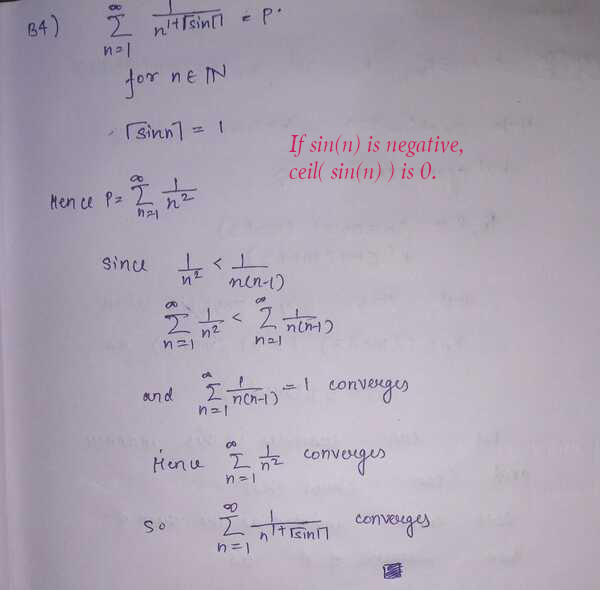 B4) ∞ ∑ n=1 1/n^(1+⌈sin⌉) = P.
for n ∈ ℕ
⌈sinn⌉ = 1
If sin(n) is negative,
ceil( sin(n) ) is 0.
Hence P = ∞ ∑ n=1 1/n²
Since 1/n² < 1/n(n-1)
∞ ∑ n=1 1/n² < ∞ ∑ n=1 1/n(n-1)
and ∞ ∑ n=1 1/n(n-1) = 1 converges
Hence ∞ ∑ n=1 1/n² converges
So ∞ ∑ n=1 1/n^(1+⌈sin⌉) converges